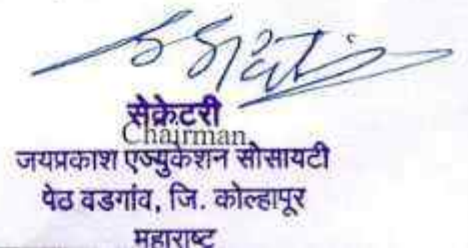 सेक्रेटरी
Chairman
जयप्रकाश एज्युकेशन सोसायटी
पेठ वडगांव, जि. कोल्हापूर
महाराष्ट